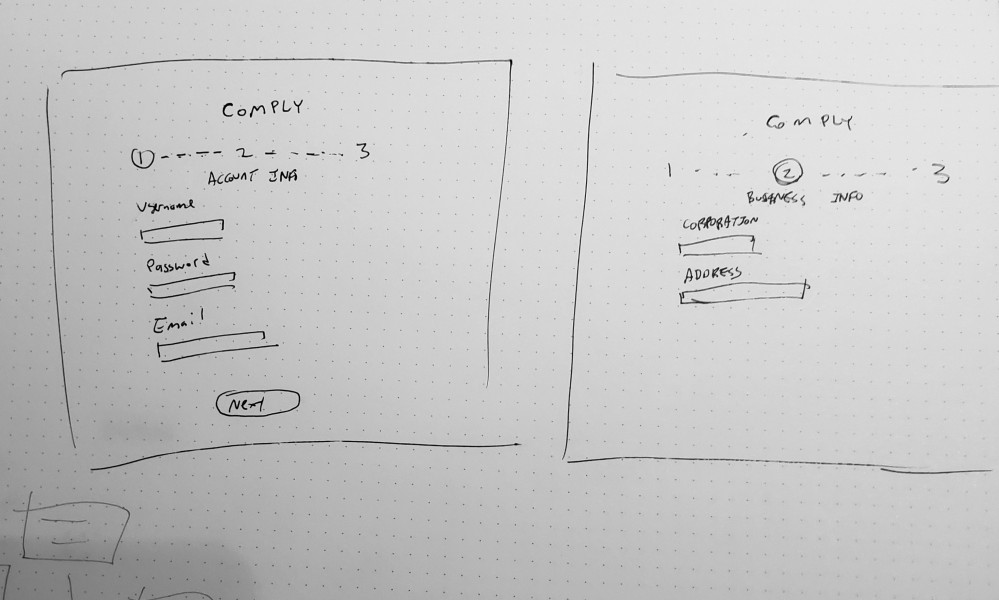 COMPLY
1 2 3
ACCOUNT INFO
Username
Password
Email
Next
COMPLY
1 2 3
BUSINESS INFO
CORPORATION
ADDRESS